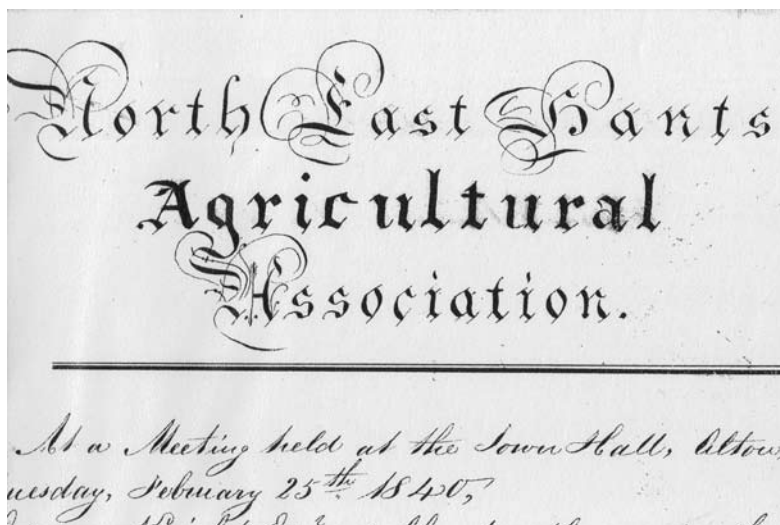 North East Hants
Agricultural
Association.
At a Meeting held at the Town Hall, Alton,
uesday, February 25th 1840,